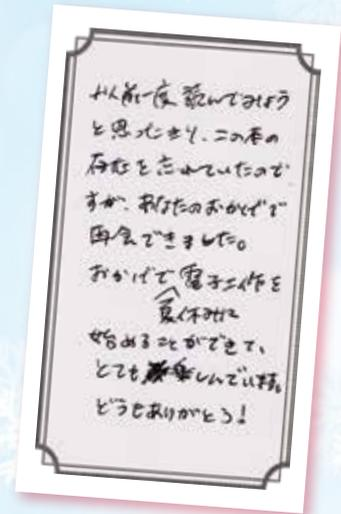 以前一度読んでみよう
と思ったきり、この本の
存在を忘れていたので
すが、あなたのおかげで
再会できました。
おかげで電子工作を
夏休みに
始めることができて、
とても楽しんでいます。
どうもありがとう!